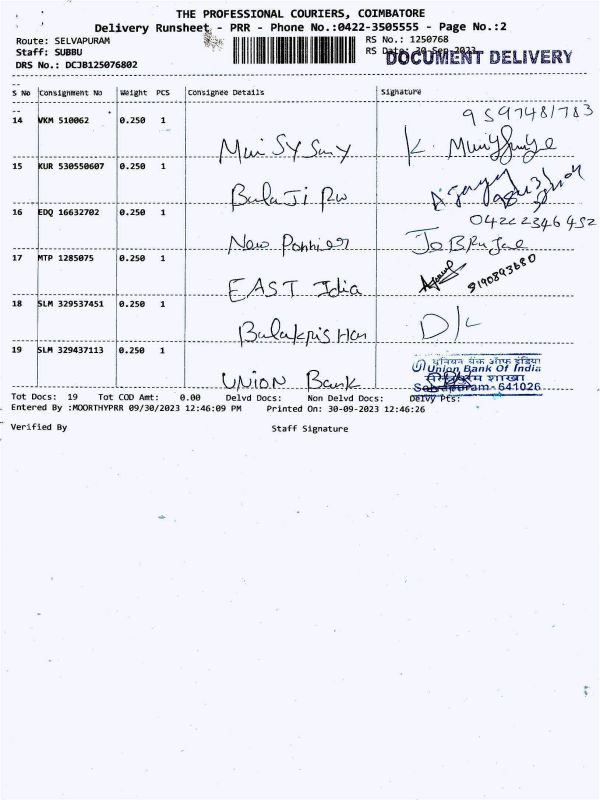 THE PROFESSIONAL COURIERS, COIMBATORE
Delivery Runsheet - PRR - Phone No.:0422-3505555 - Page No.:2
Route: SELVAPURAM
RS No.: 1250768
Staff: SUBBU
RS Date: 30-Sep-2023
DOCUMENT DELIVERY
DRS No.: DCJB125076802
S No Consignment No Weight PCS Consignee Details Signature
14 VKM 510062 0.250 1
9597481783
15 KUR 530550607 0.250 1
Balaji
16 EDQ 16632702 0.250 1
04222346452
New
17 MTP 1285075 0.250 1
EAST Idia
9190893680
18 SLM 329537451 0.250 1
19 SLM 329437113 0.250 1
UNION Bank
यूनियन बैंक ऑफ इंडिया
Union Bank Of India
शाखा
641026
Tot Docs: 19 Tot COD Amt: 0.00 Delvd Docs: Non Delvd Docs: Delvy Pts:
Entered By :MOORTHYPRR 09/30/2023 12:46:09 PM Printed On: 30-09-2023 12:46:26
Verified By Staff Signature